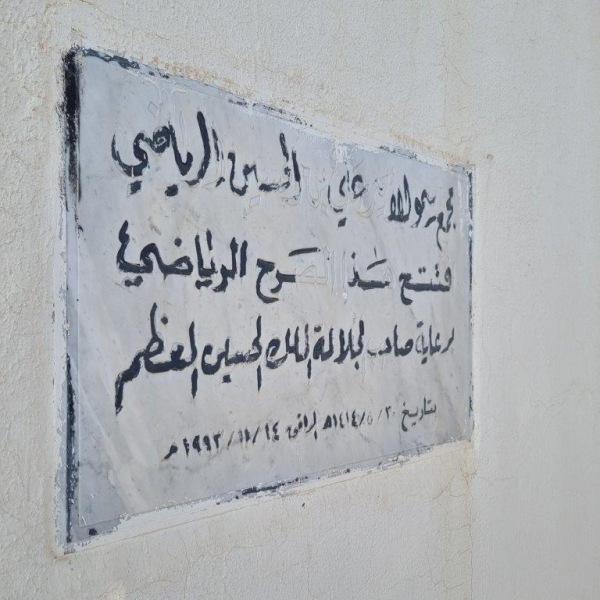 مجمع سمو الا علي الحسين الرياضي
فتتح هذ صرح الرياضي
برعاية صاحب لجلالة الملك الحسين المعظم
بتاريخ ٣٠/٥/١٤١٤هـ الموافق ١٤/١١/١٩٩٣ م